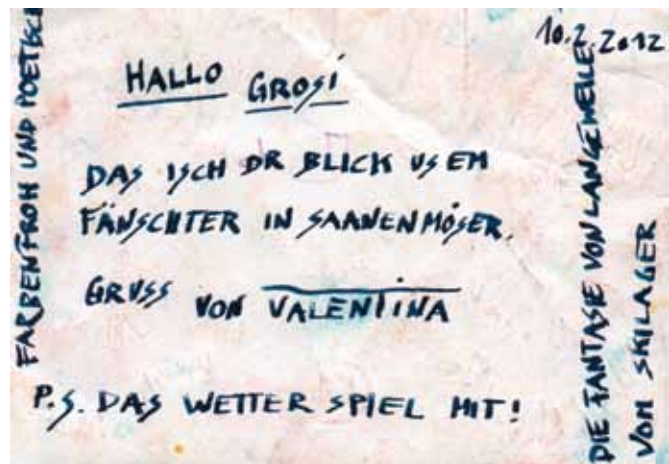 10.2.2012
HALLO GROSI
DAS ISCH DR BLICK US EM
FÄNSCHTER IN SAANENMÖSER.
GRUSS VON VALENTINA
P.S. DAS WETTER SPIEL MIT!
FARBENFROH UND POETISCH
DIE FANTASIE VON LANGEWEILE
VOM SKILAGER